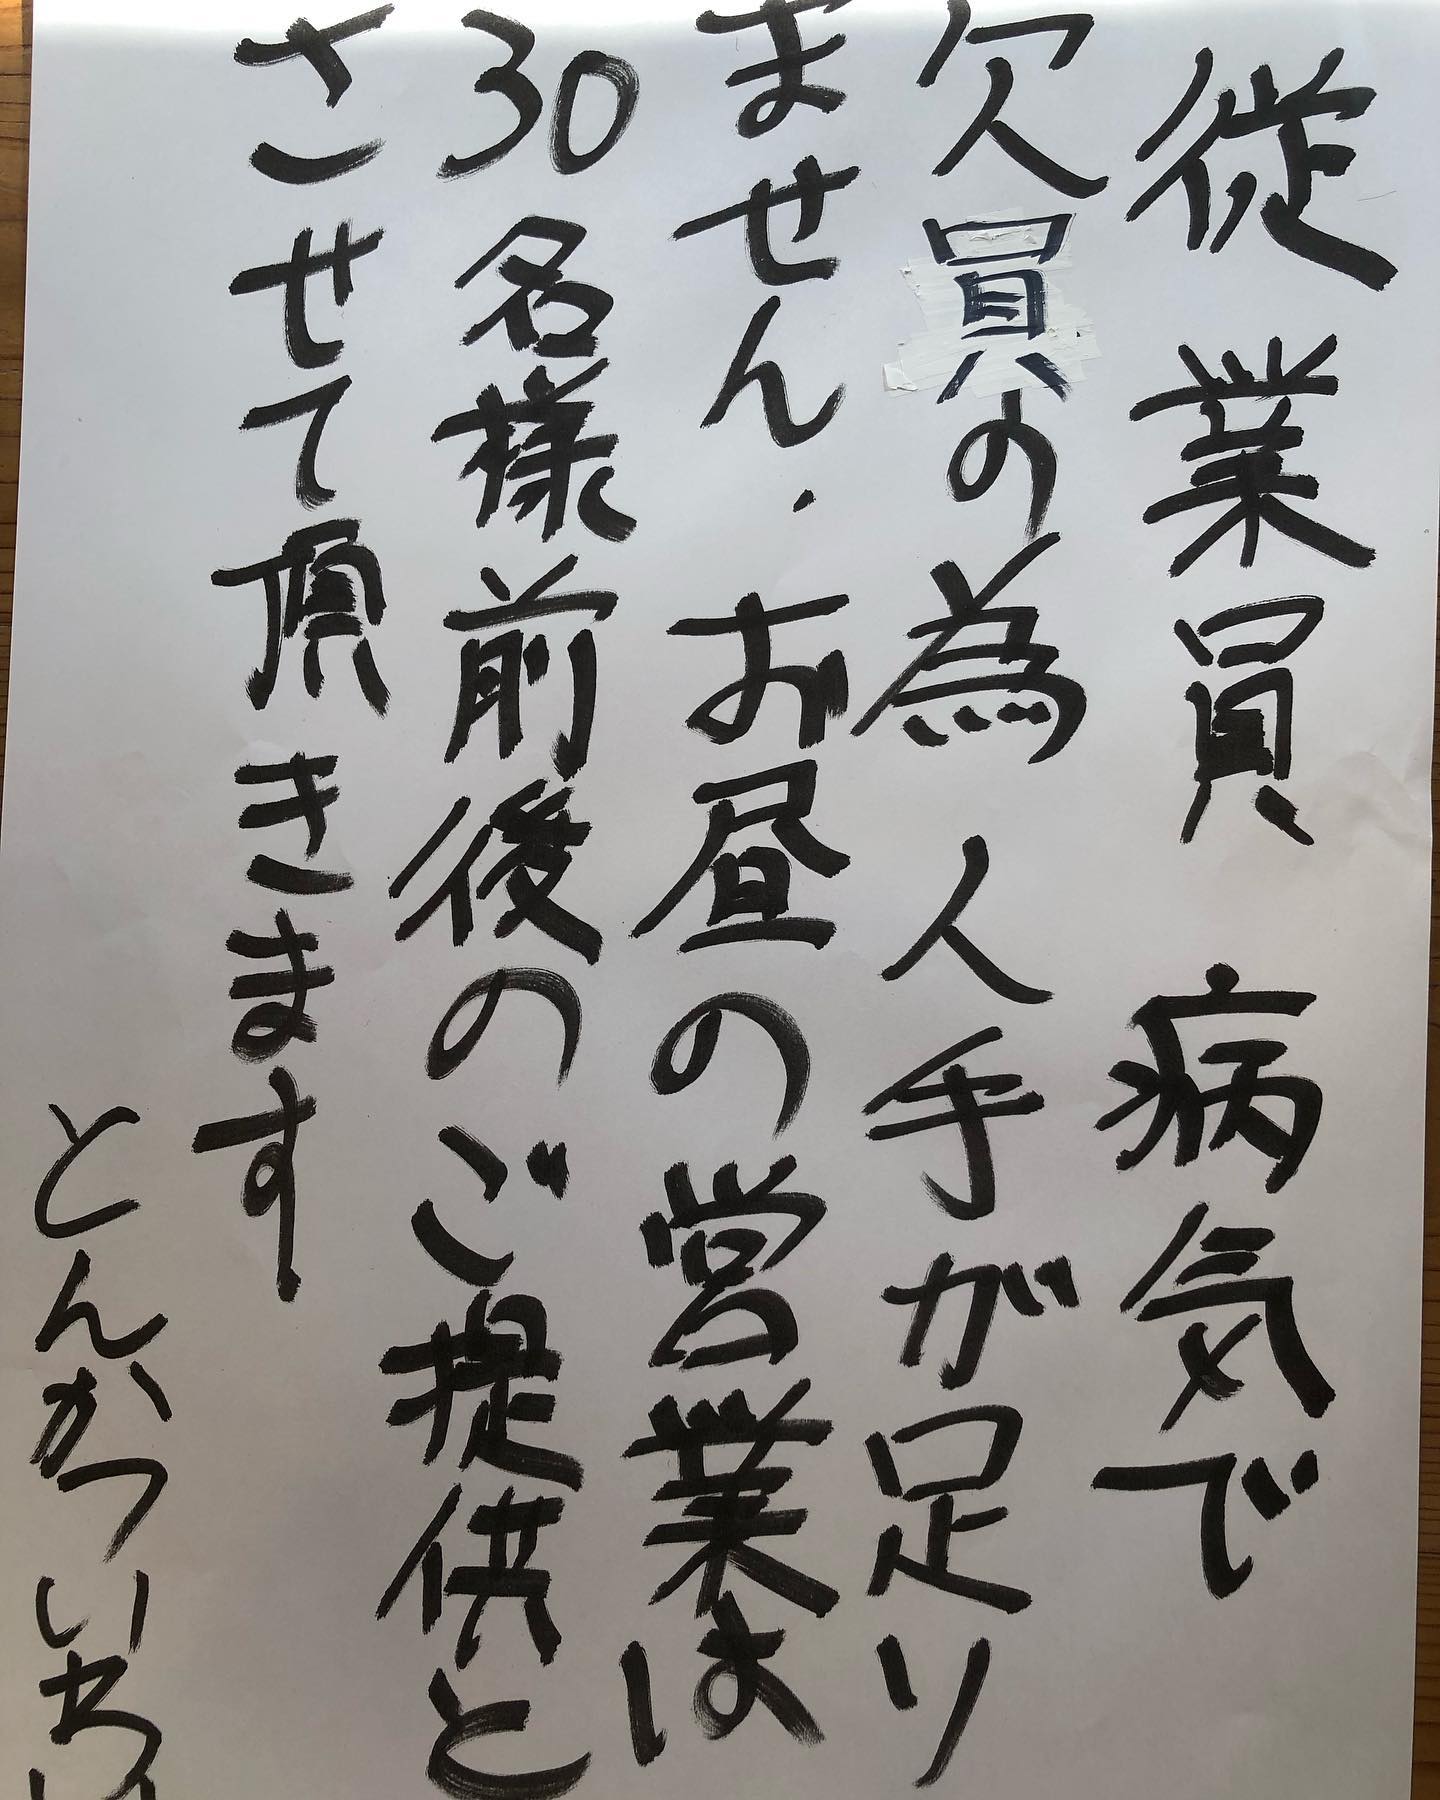 従業員 病気で
欠員の為 人手が足り
ません. お昼の営業は
30名様前後のご提供と
させて頂きます
とんかついち